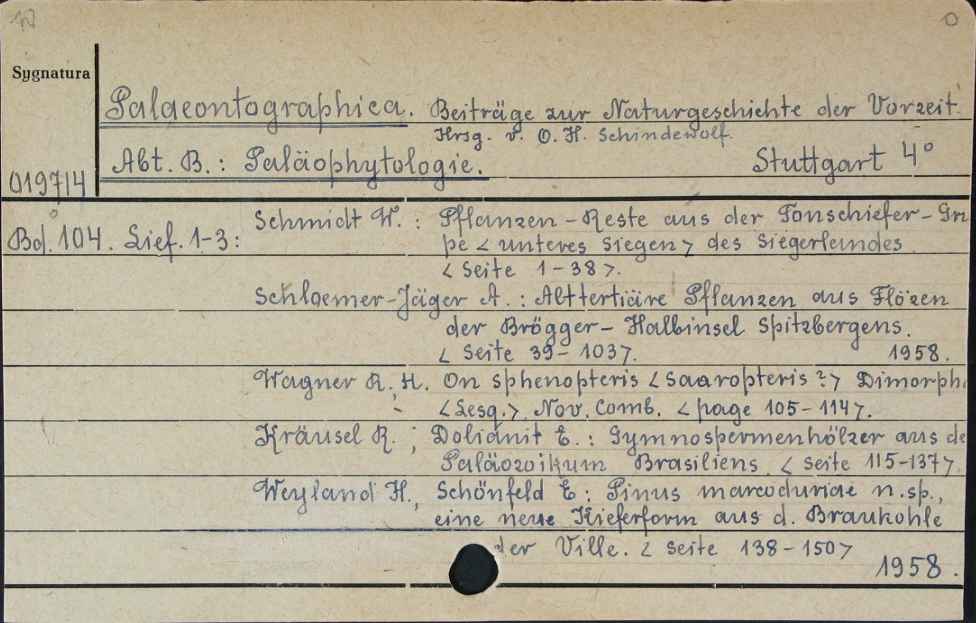 W O
Sygnatura
Palaeontographica. Beiträge zur Naturgeschichte der Vorzeit.
Hrsg. v. O. H. Schindewolf.
Abt. B. : Paläophytologie. Stuttgart 4°
019714
Bd. 104. Lief. 1-3: Schmidt W. : Pflanzen-Reste aus der Tonschiefer-Gru
pe <unteres Siegen> des Siegerlandes
<Seite 1-38>.
Schloemer-Jäger A. : Alttertiäre Pflanzen aus Flözen
der Brögger-Halbinsel Spitzbergens.
<Seite 39-103>. 1958.
Wagner R. H. On Sphenopteris <Saaropteris?> Dimorph
<Lesq.> Nov. Comb. <page 105-114>.
Kräusel R. ; Dolianit E. : Gymnospermenhölzer aus de
Paläozoikum Brasiliens. <Seite 115-137>
Weyland H., Schönfeld E : Pinus marcoduriae n.sp.,
eine neue Kieferform aus d. Braukohle
der Ville. <Seite 138-150>
1958.